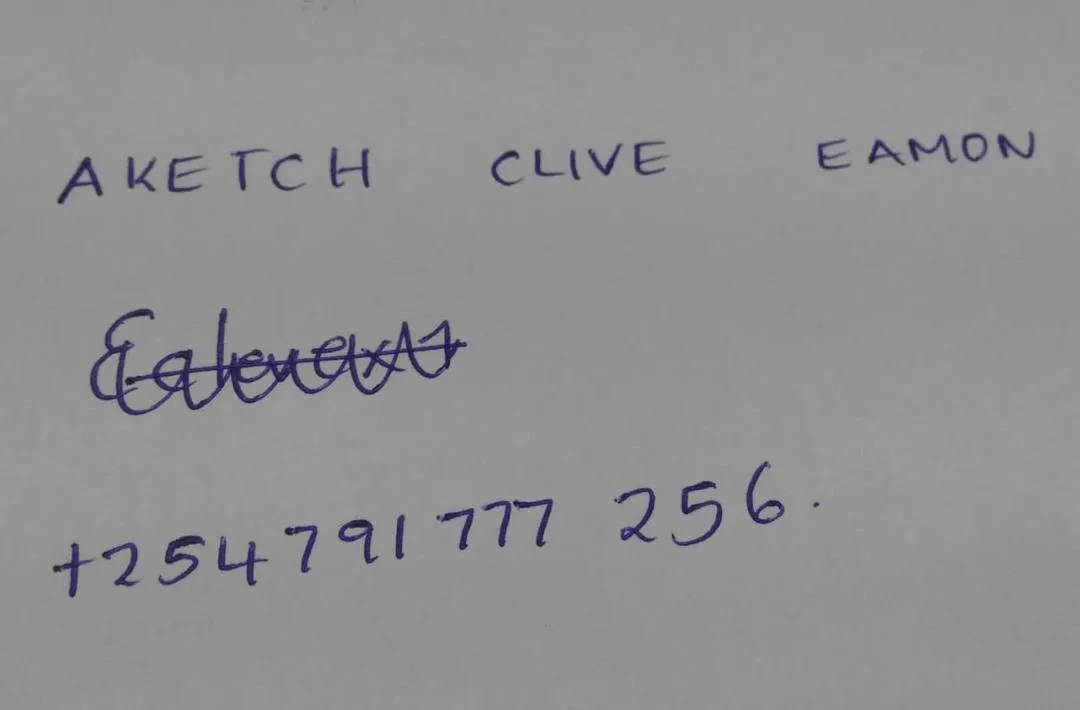 AKETCH CLIVE EAMON
+254791777 256.